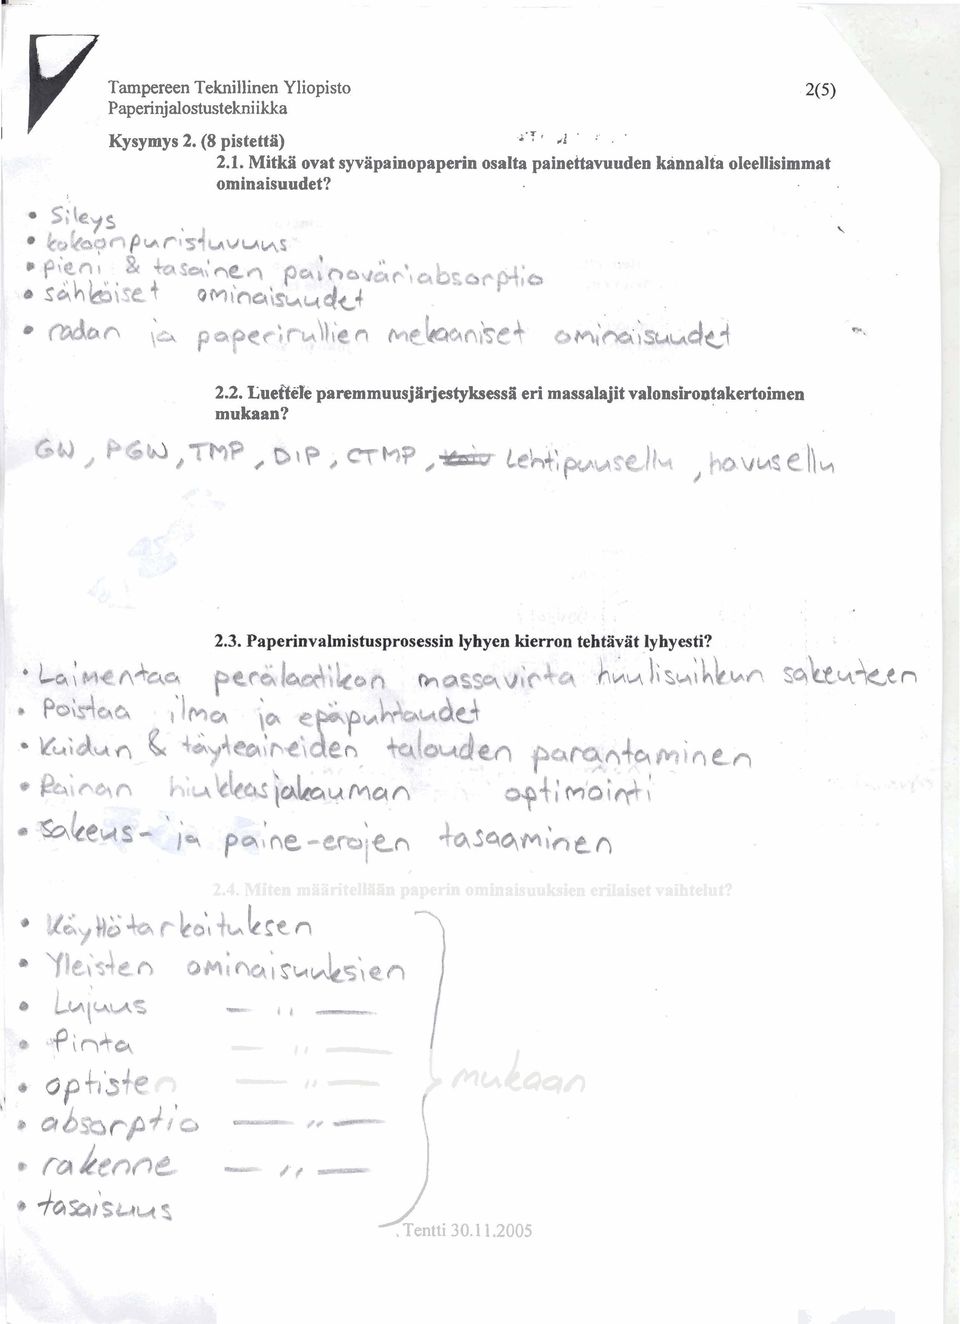 Tampereen Teknillinen Yliopisto
2(5)
Paperinjalostustekniikka
Kysymys 2. (8 pistettä)
2.1. Mitkä ovat syväpainopaperin osalta painettavuuden kannalta oleellisimmat
ominaisuudet?
• Sileys
• kokoonpuristuvuus
• pieni & tasainen painoväriabsorptio
• sähköiset ominaisuudet
• radan ja paperirullien mekaaniset ominaisuudet
2.2. Luettele paremmuusjärjestyksessä eri massalajit valonsirontakertoimen
mukaan?
GW, PGW, TMP, DIP, CTMP, Lehtipuusellu, havusellu
2.3. Paperinvalmistusprosessin lyhyen kierron tehtävät lyhyesti?
• Laimentaa perälaatikon massavirta huulisuihkun sakeuteen
• Poistaa ilma ja epäpuhtaudet
• Kuidun & täyteaineiden talouden parantaminen
• Painan hiukkasjakauman optimointi
• Sakeus- ja paine-erojen tasaaminen
2.4. Miten määritellään paperin ominaisuuksien erilaiset vaihtelut?
• Käyttötarkoituksen
• Yleisten ominaisuuksien
• Lujuus — ,, —
• Pinta — ,, —
• optisten — ,, — mukaan
• absorptio — ,, —
• rakenne — ,, —
• tasaisuus
Tentti 30.11.2005